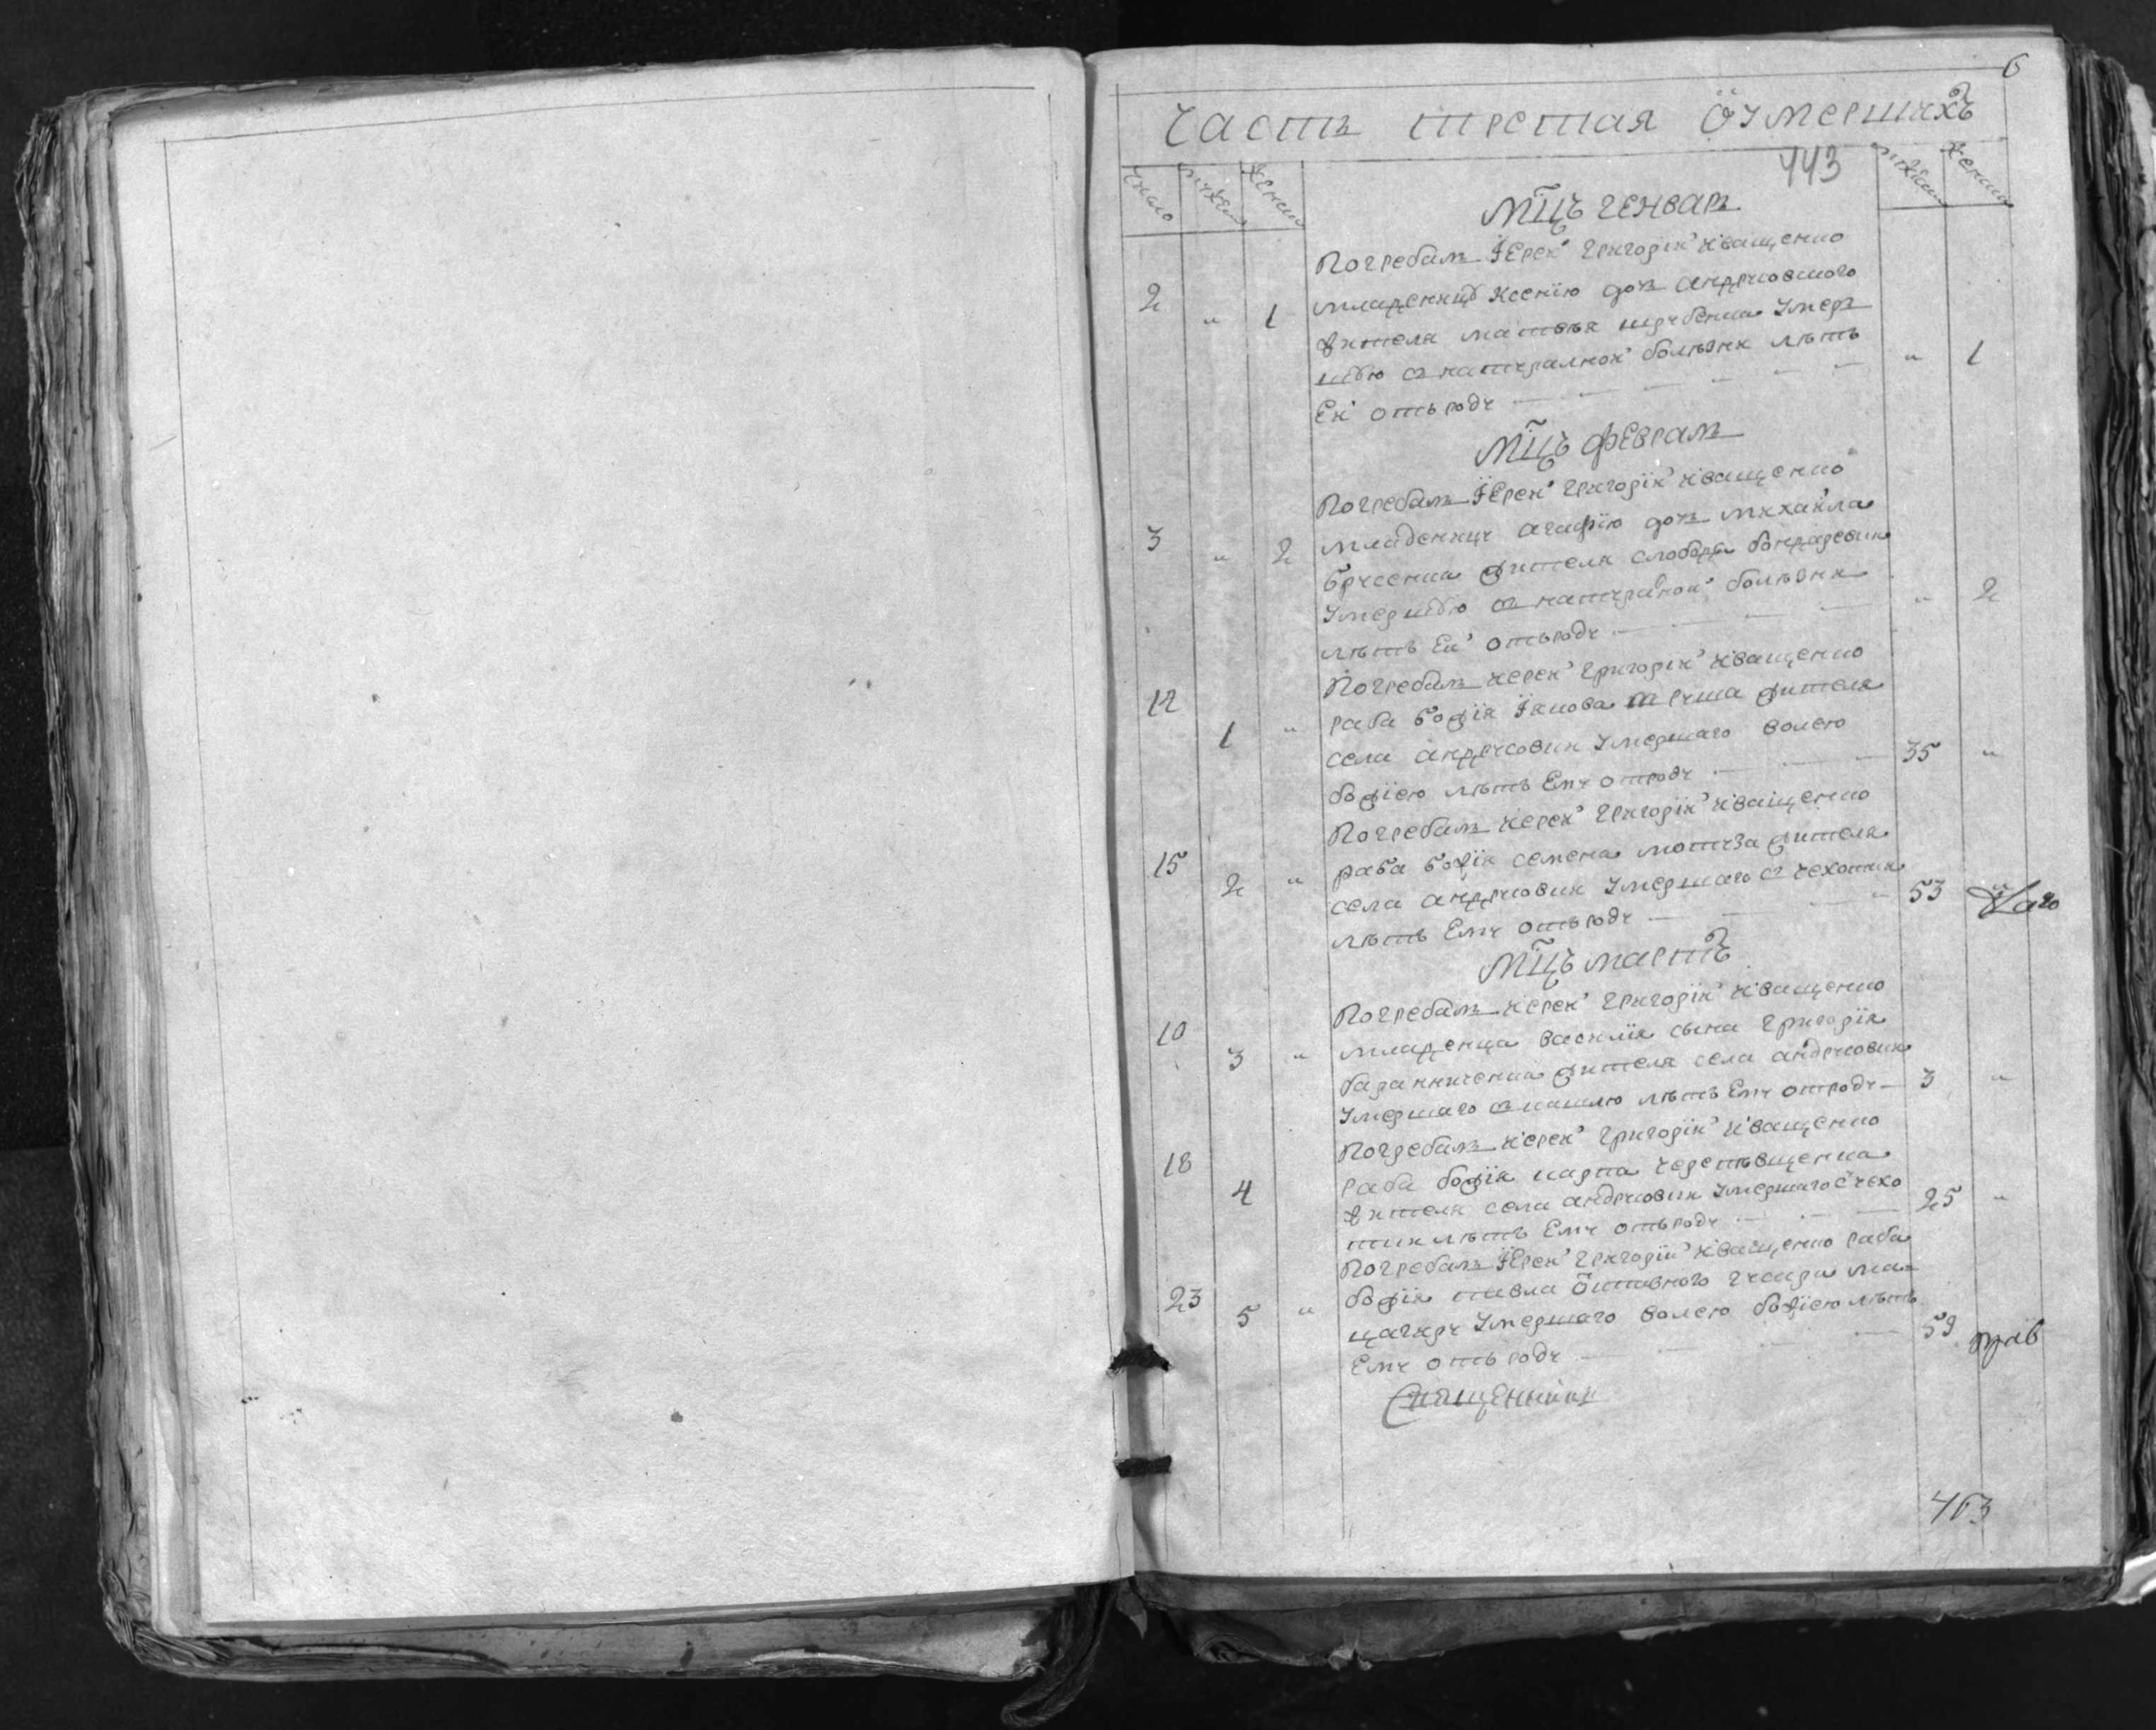 6
Часть третая о умершихъ
443
число мужеска женска мужеска женска
мц҃ъ генварь
Погребалъ Іерей Григорій Иващенко
2 " 1 младеницу Ксенію дочь андрусовского
жителя матвея умер
шую с натуралной болезни летъ
Ей отъ роду — " 1
мц҃ъ февраль
Погребалъ Іерей Григорій Иващенко
3 " 2 младеницу агафію дочь михаила
жителя слободы
умершую с натуралной болезни
летъ Ей отъ роду — " 2
Погребалъ иерей Григорій Иващенко
12 1 " раба божія Іякова жителя
села андрусовки умершаго волею
божіею летъ Ему отроду — 35 "
Погребалъ иерей Григорій Иващенко
15 2 " раба божія семена мотуза жителя
села андрусовки умершаго с чехотки
летъ Ему отъ роду — 53 "
мц҃ъ мартъ
Погребалъ иерей Григорій Иващенко
10 3 " младенца василія сына Григорія
жителя села андрусовки
умершаго с кашлю летъ Ему отроду — 3 "
Погребалъ иерей Григорій Иващенко
18 4 раба божія карпа
жителя села андрусовки умершаго с чехо
тки летъ Ему отъ роду — 25 "
Погребалъ Іерей Григорій Иващенко раба
23 5 " божія павла
умершаго волею божіею летъ
Ему отъ роду — 59
Священникъ
463